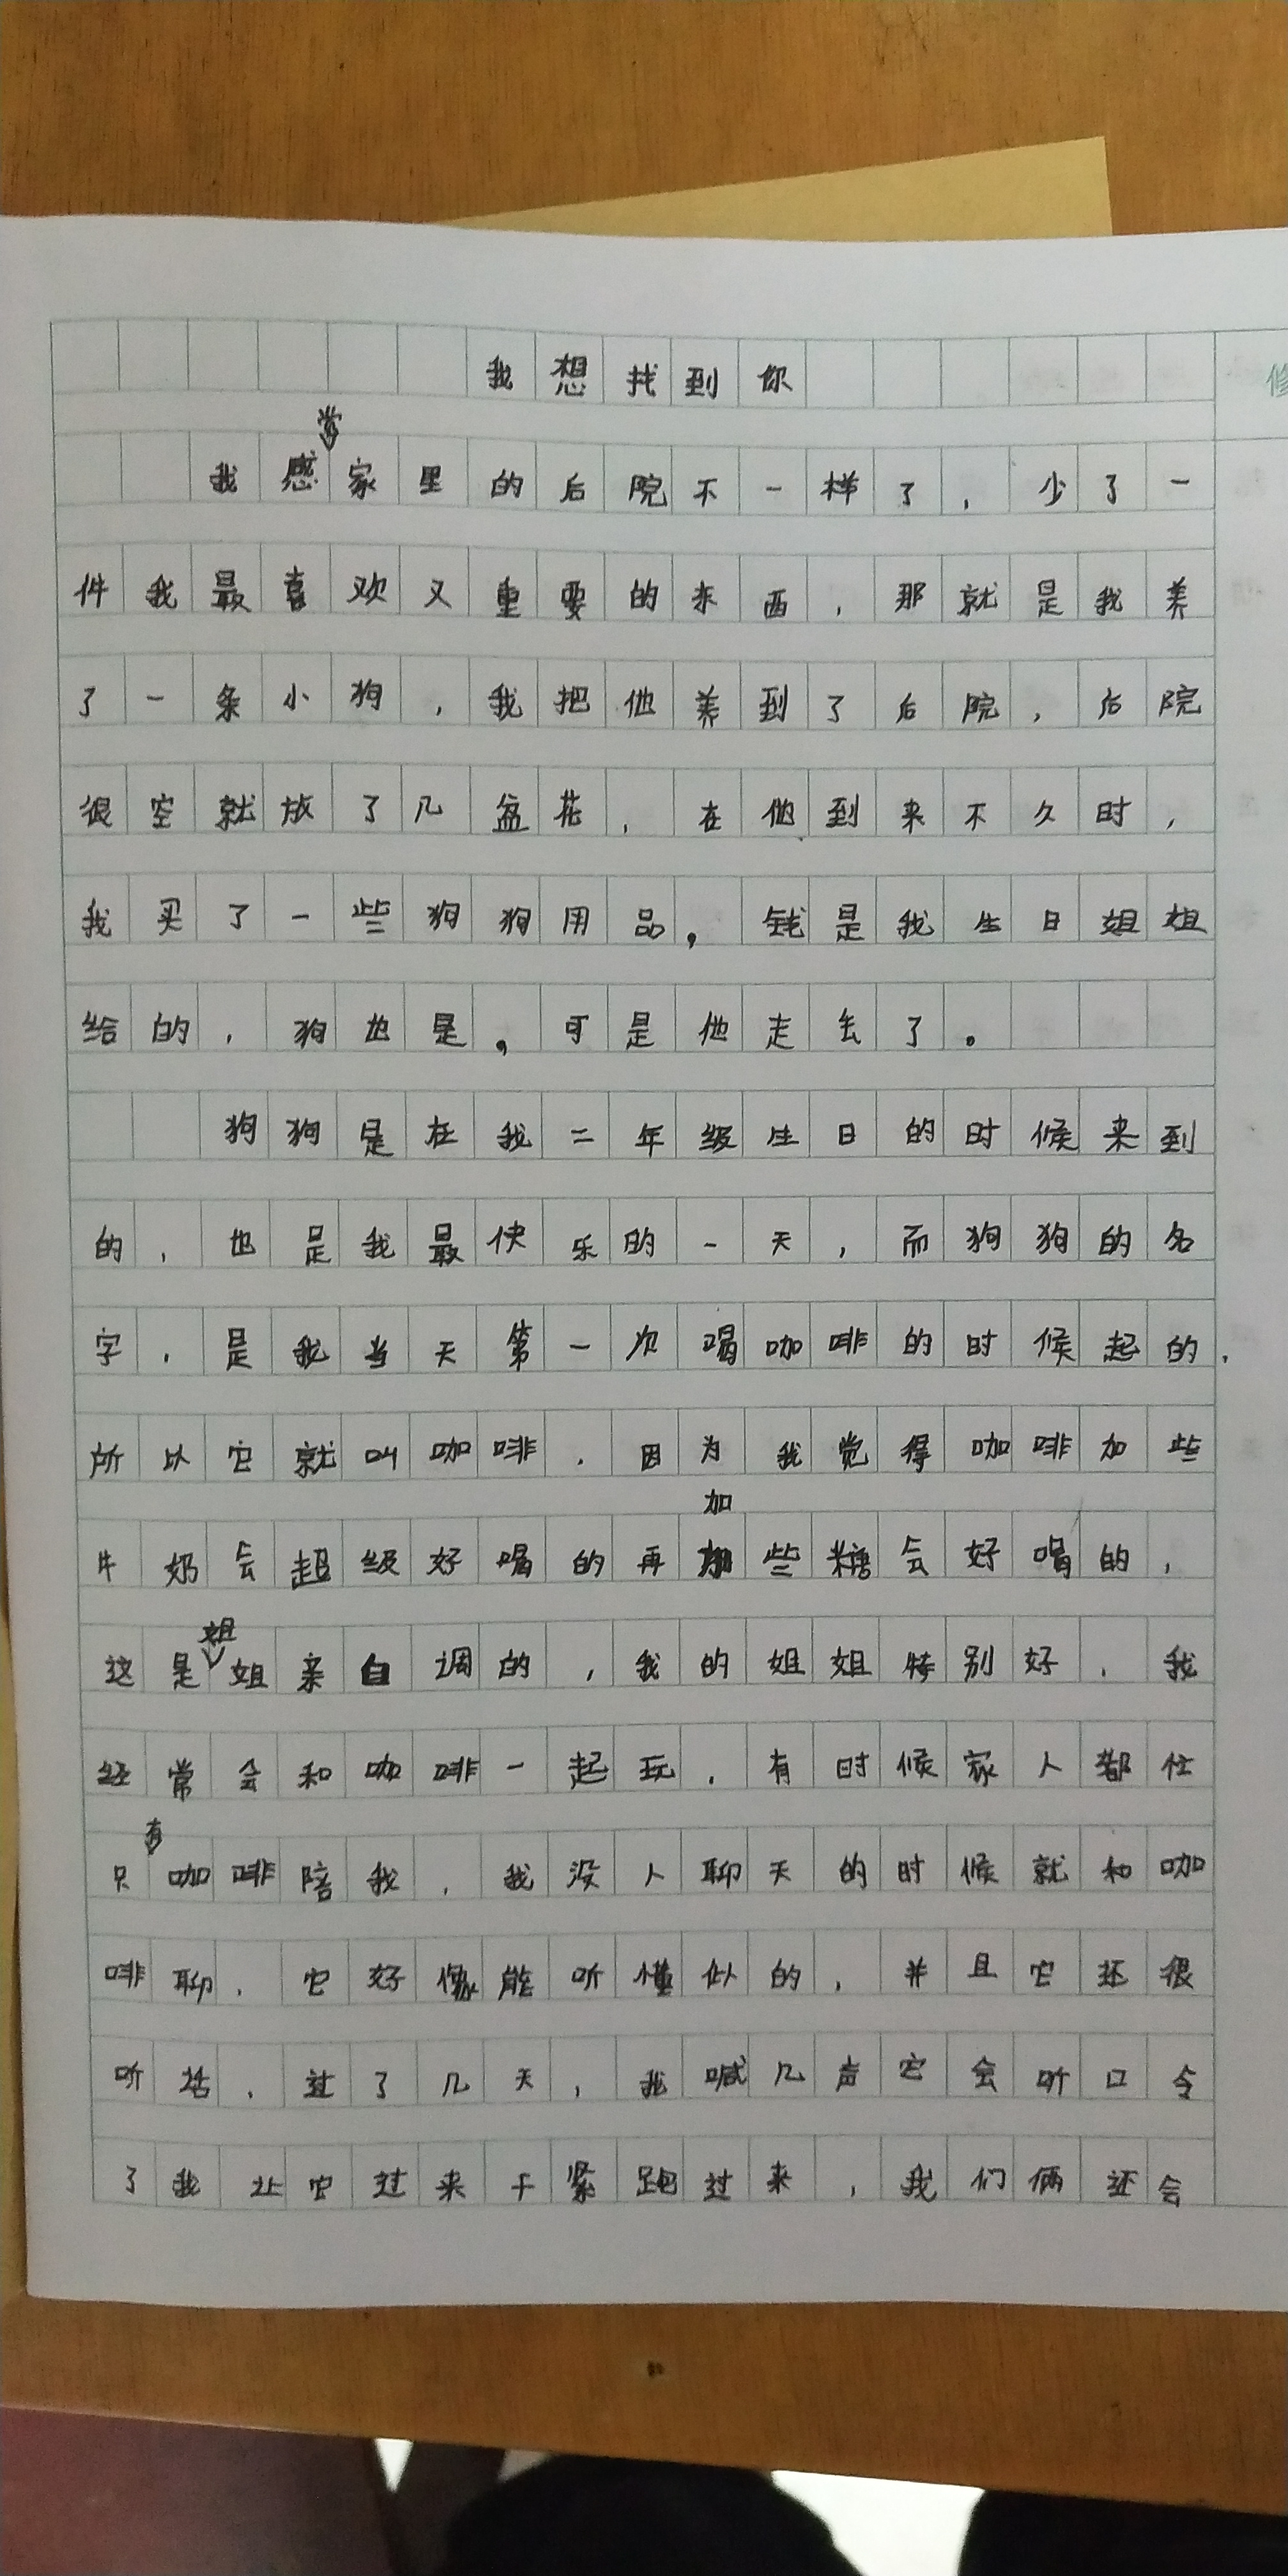 我想找到你
我感觉家里的后院不一样了，少了一
件我最喜欢又重要的东西，那就是我养
了一条小狗，我把他养到了后院，后院
很空就放了几盆花，在他到来不久时，
我买了一些狗狗用品，钱是我生日姐姐
给的，狗也是，可是他走丢了。
狗狗是在我二年级生日的时候来到
的，也是我最快乐的一天，而狗狗的名
字，是我当天第一次喝咖啡的时候起的，
所以它就叫咖啡，因为我觉得咖啡加些
牛奶会超级好喝的再加些糖会好喝的，
这是姐姐亲自调的，我的姐姐特别好，我
经常会和咖啡一起玩，有时候家人都忙
只有咖啡陪我，我没人聊天的时候就和咖
啡聊，它好像能听懂似的，并且它还很
听话，过了几天，我喊几声它会听口令
了我让它过来干紧跑过来，我们俩还会
修